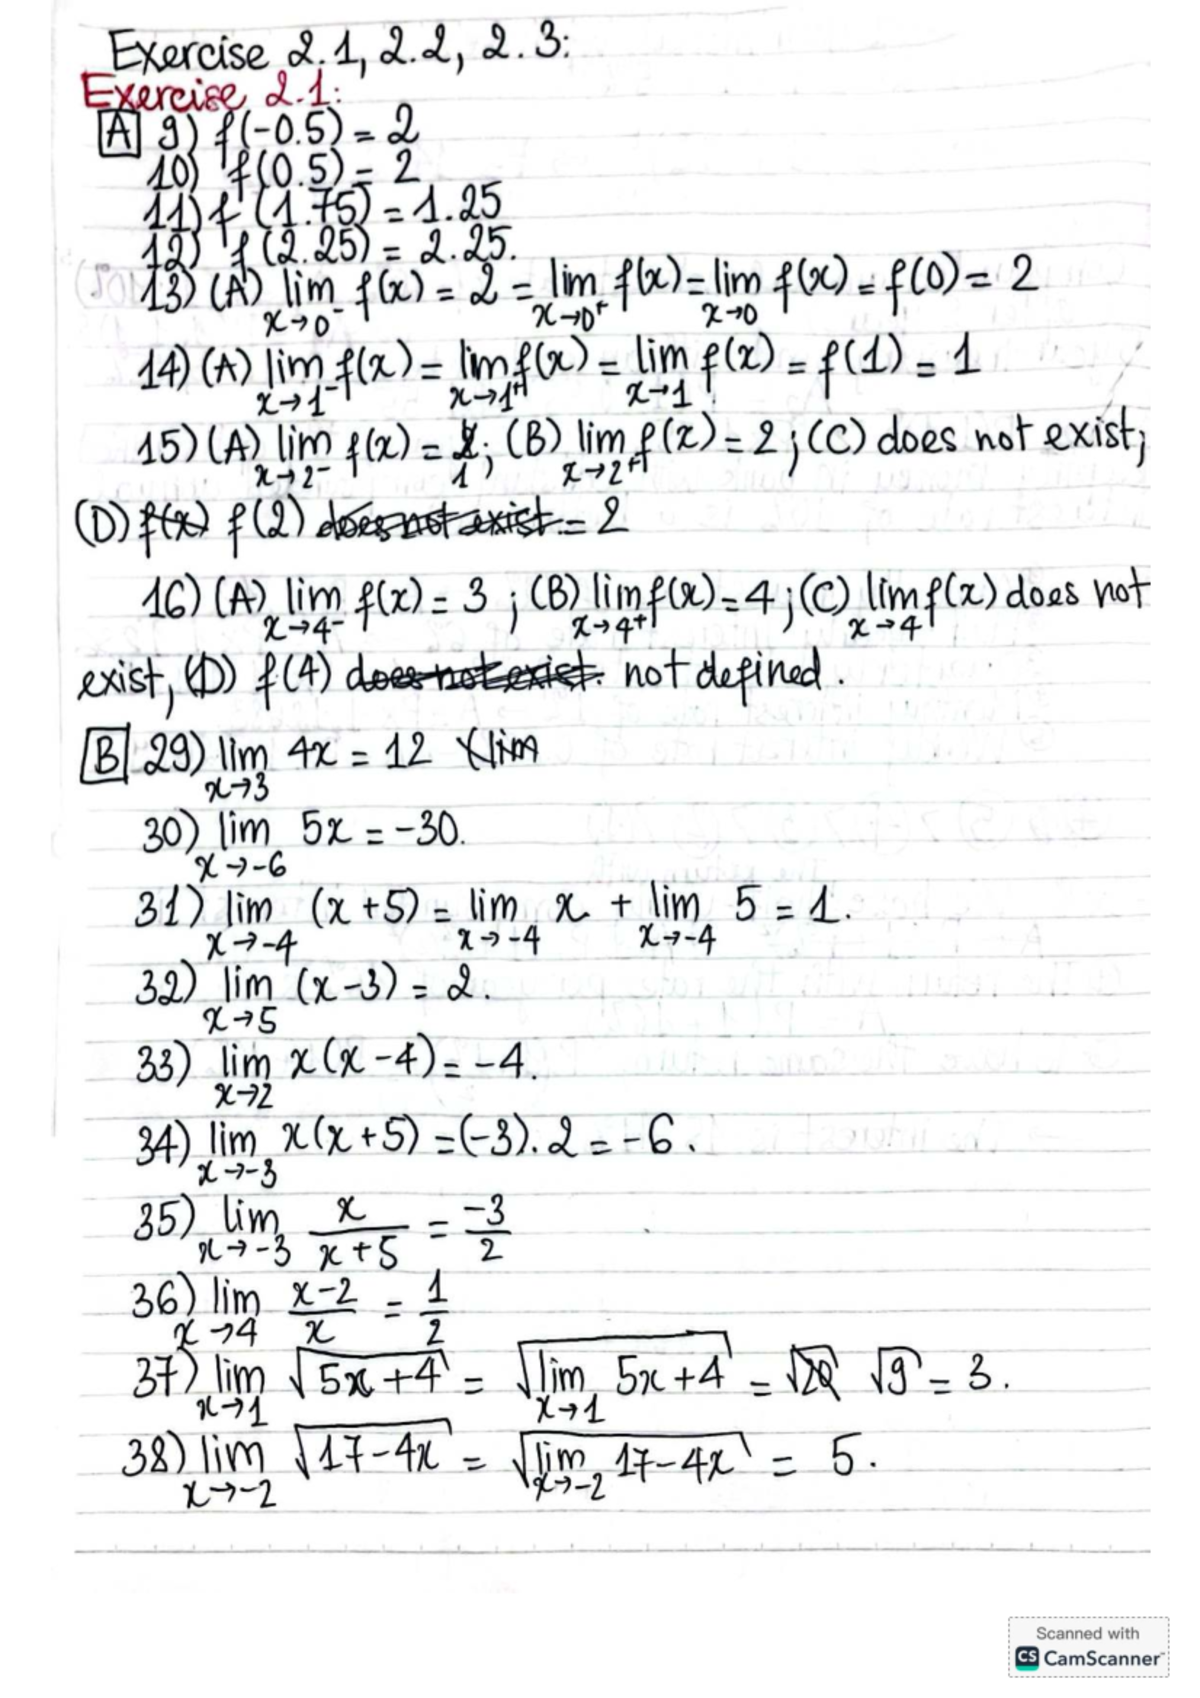 Exercise 2.1, 2.2, 2.3:
Exercise 2.1:
A 9) f(-0.5) = 2
10) f(0.5) = 2
11) f(1.75) = 1.25
12) f(2.25) = 2.25.
13) (A) lim x→0⁻ f(x) = 2 = lim x→0⁺ f(x) = lim x→0 f(x) = f(0) = 2
14) (A) lim x→1⁻ f(x) = lim x→1⁺ f(x) = lim x→1 f(x) = f(1) = 1
15) (A) lim x→2⁻ f(x) = 1; (B) lim x→2⁺ f(x) = 2; (C) does not exist;
(D) f(x) f(2) does not exist. = 2
16) (A) lim x→4⁻ f(x) = 3 ; (B) lim x→4⁺ f(x) = 4 ; (C) lim x→4 f(x) does not
exist, (D) f(4) does not exist. not defined.
B 29) lim x→3 4x = 12 lim
30) lim x→-6 5x = -30.
31) lim x→-4 (x+5) = lim x→-4 x + lim x→-4 5 = 1.
32) lim x→5 (x-3) = 2.
33) lim x→2 x(x-4) = -4.
34) lim x→-3 x(x+5) = (-3).2 = -6.
35) lim x→-3 x/(x+5) = -3/2
36) lim x→4 (x-2)/x = 1/2
37) lim x→1 √(5x+4) = √(lim x→1 5x+4) = √20 √9 = 3.
38) lim x→-2 √(17-4x) = √(lim x→-2 17-4x) = 5.
Scanned with
CS CamScanner